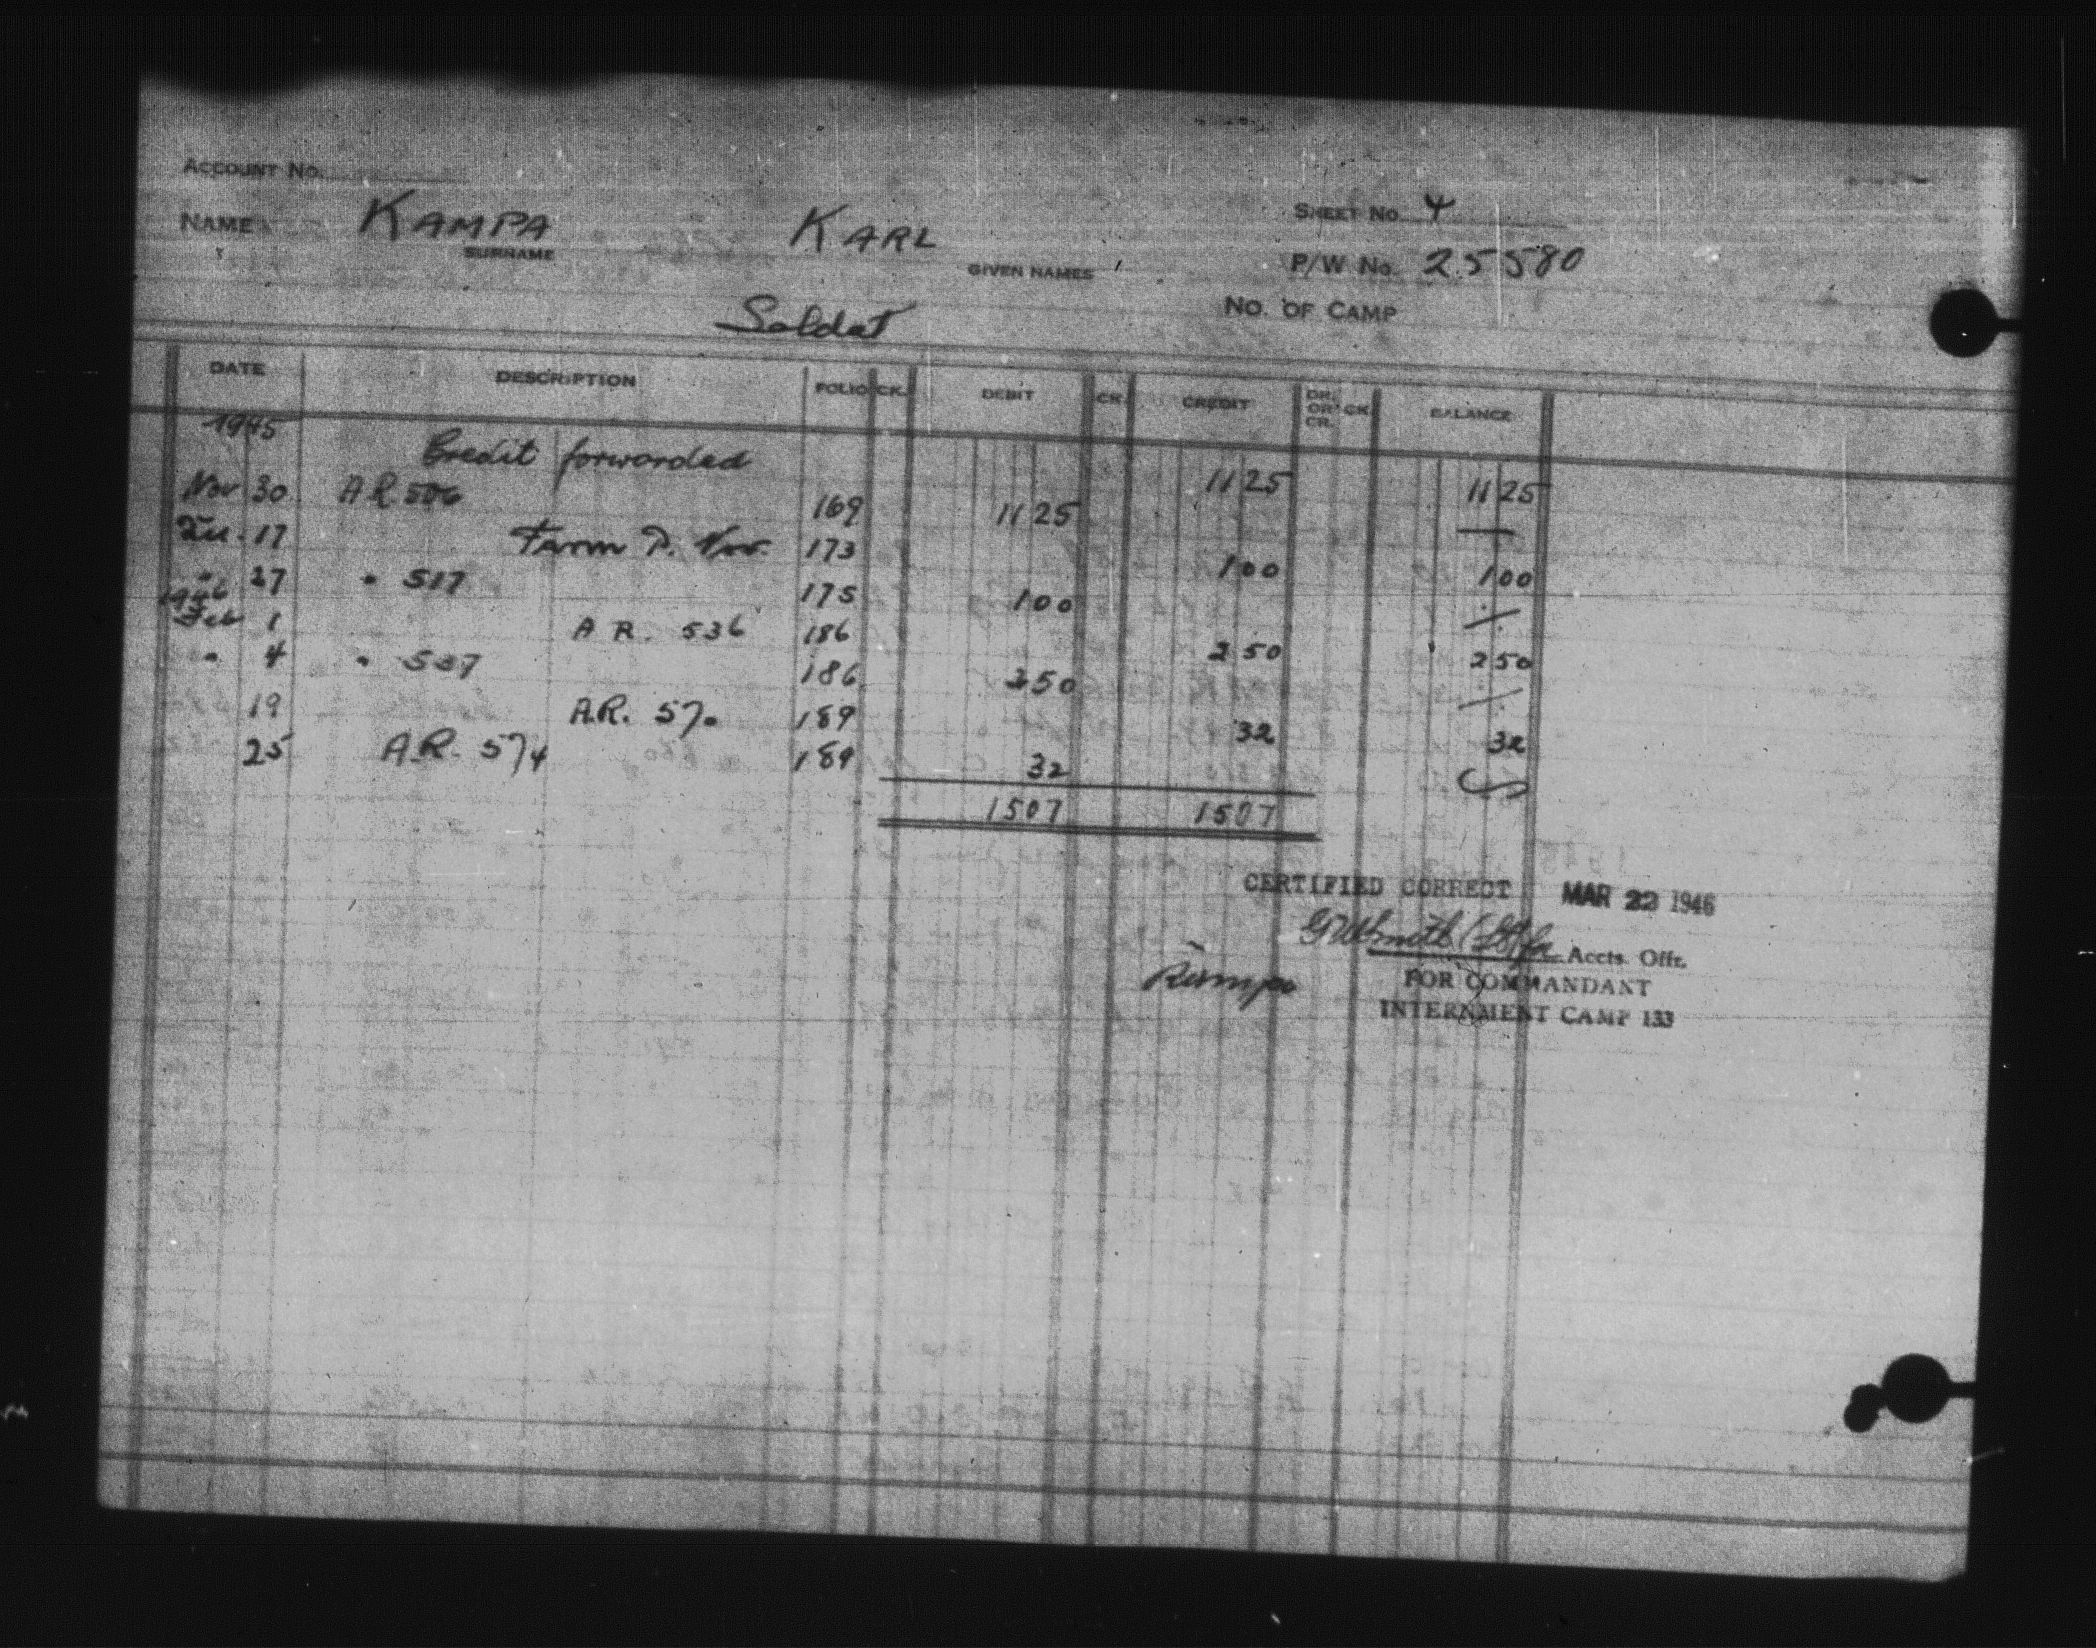 ACCOUNT NO.
SHEET NO. 4
NAME KAMPA KARL
SURNAME GIVEN NAMES
P/W NO. 25580
Soldat
NO. OF CAMP
DATE DESCRIPTION FOLIO CK. DEBIT CK. CREDIT DR. OR CR. CK. BALANCE
1945 Credit forwarded 11 25 11 25
Nov 30 AR 506 169 11 25 —
17 Farm P. Nov. 173 1 00 1 00
" 27 " 517 175 1 00
1946
Feb 1 A R. 536 186 2 50 2 50
" 4 " 537 186 2 50
19 A.R. 570 189 32 32
25 A.R. 574 189 32
1507 1507
CERTIFIED CORRECT MAR 22 1946
Accts. Offr.
Kampa
FOR COMMANDANT
INTERNMENT CAMP 133